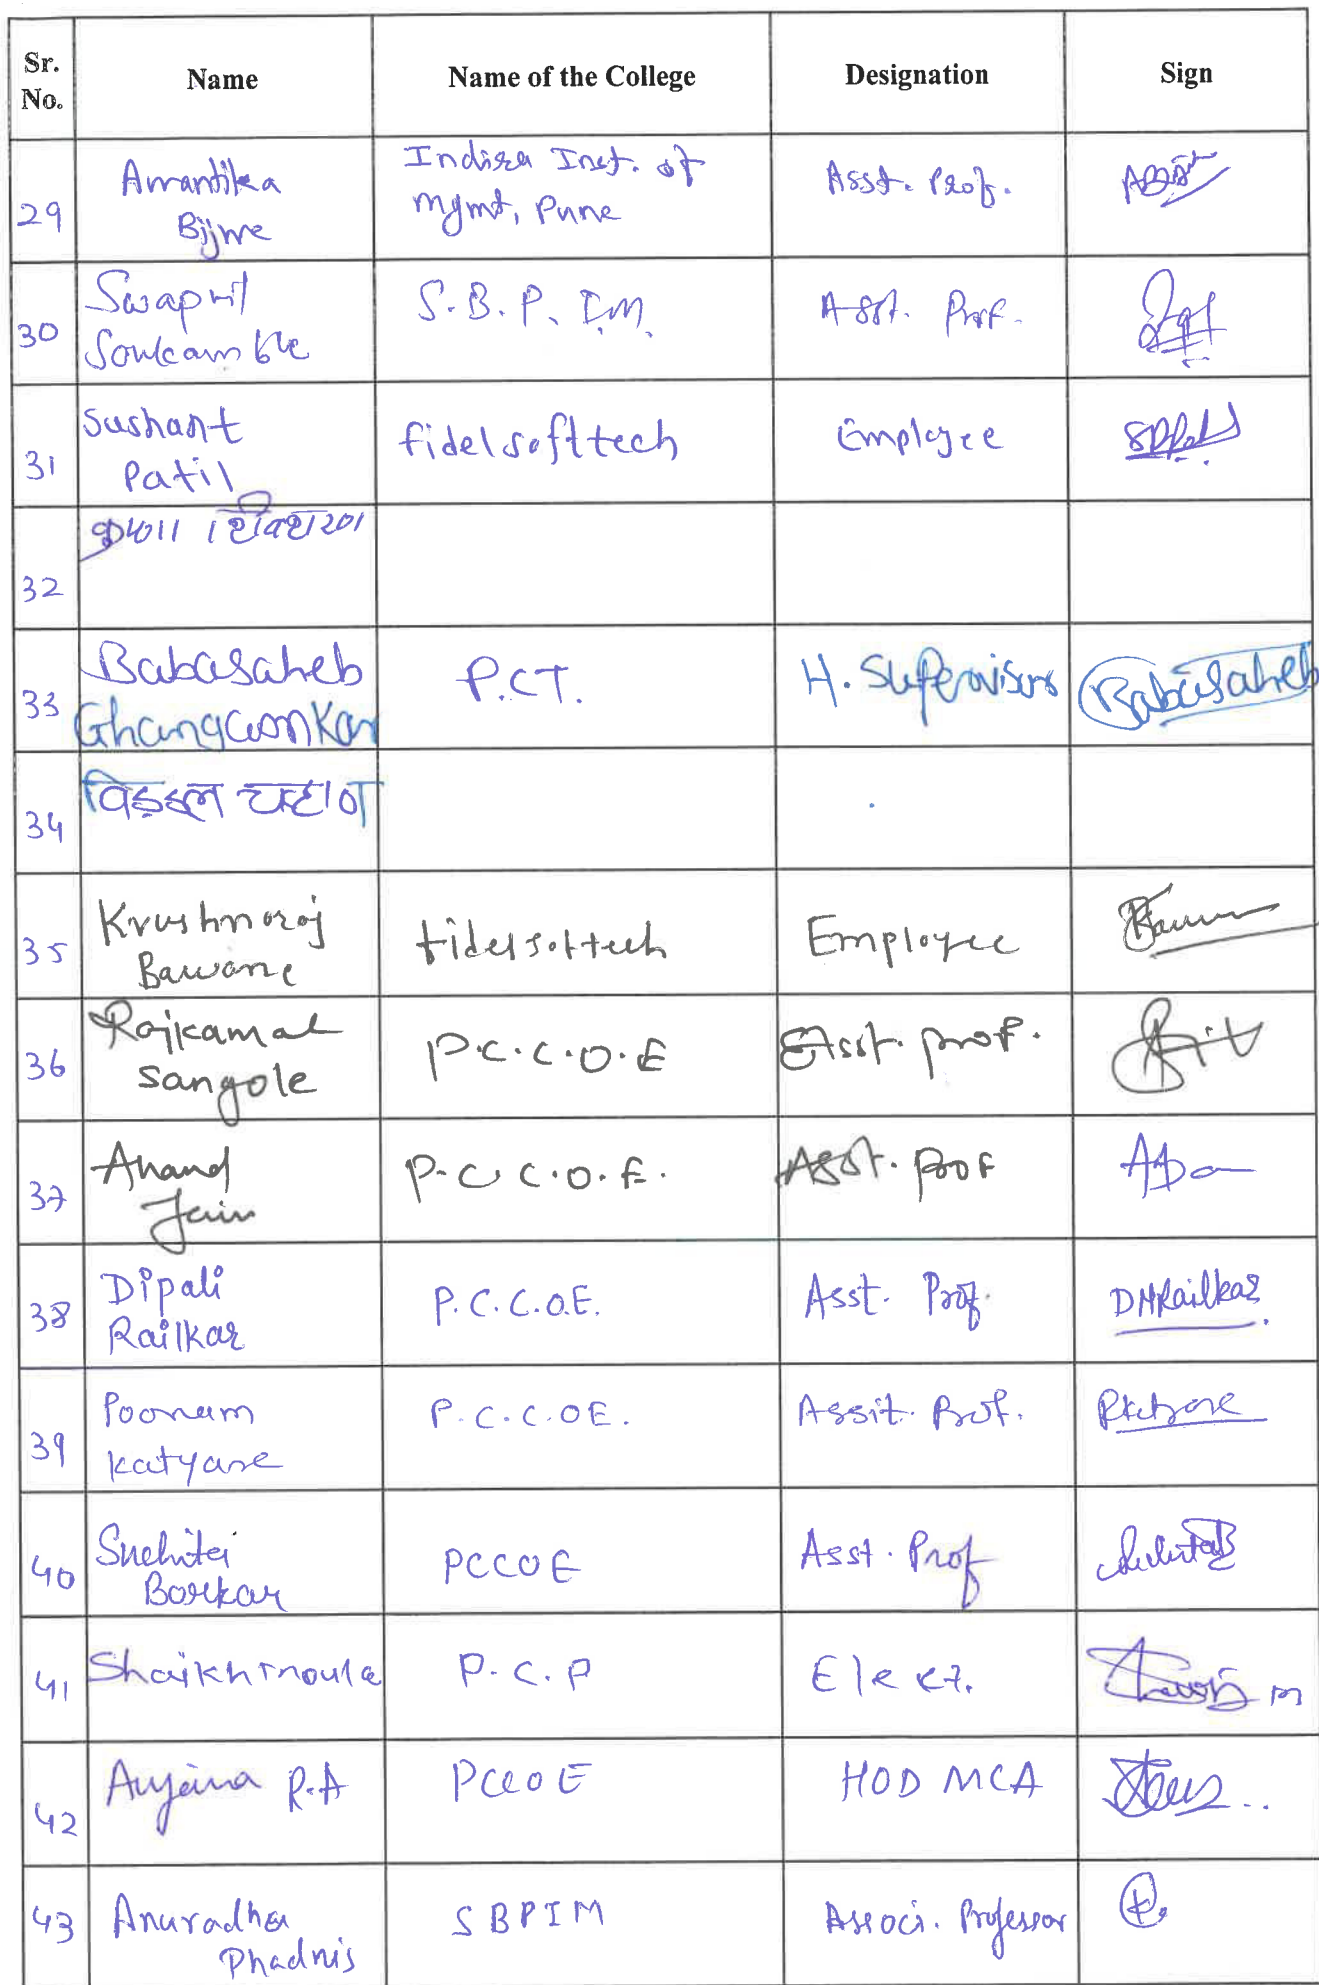 Sr. No. Name Name of the College Designation Sign
29 Amantika Bijwe Indira Inst. of Mgmt, Pune Asst. Prof.
30 Swapnil Sonkamble S.B.P.I.M. Asst. Prof.
31 Sushant Patil fidelsofttech Employee
32
33 Babasaheb Ghangaonkar P.C.T. H. Supervisor Babasaheb
34 विठ्ठल चव्हाण
35 Krushnaraj Bawane fidelsofttech Employee
36 Rajkamal Sangole P.C.C.O.E Asst. prof.
37 Anand Jain P.C.C.O.E. Asst. prof
38 Dipali Railkar P.C.C.O.E. Asst. Prof. DMRailkar
39 Poonam Katyare P.C.C.OE. Assit. Prof.
40 Suchita Borkar PCCOE Asst. Prof
41 Shaikh moula P.C.P Elect.
42 Anjana R.A PCCOE HOD MCA
43 Anuradha Phadnis SBPIM Associ. Professor